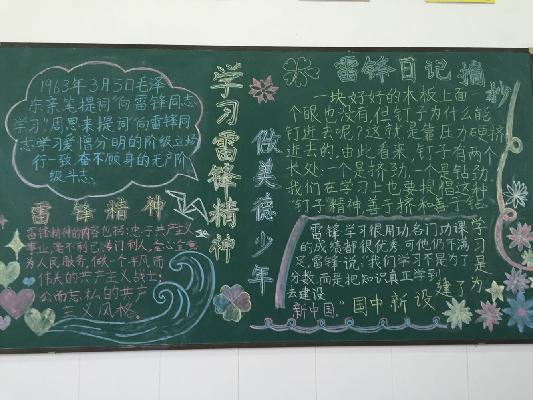 1963年3月5日毛泽
东亲笔提词"向雷锋同志
学习"周恩来提词"向雷锋同
志学习爱憎分明的阶级立场
言行一致奋不顾身的无产阶
级斗志。
雷锋精神
雷锋精神的内容包括:忠于共产主义
事业,毫不利己,专门利人,全心全意
为人民服务,做一个平凡而
伟大的共产主义战士;
公而忘私的共产
主义风格。
学习雷锋精神
做美德少年
雷锋日记摘抄
一块好好的木板上面一
个眼也没有,但钉子为什么能
钉进去呢?这就是靠压力硬挤
进去的,由此看来,钉子有两个
长处:一个是挤劲,一个是钻劲,
我们在学习上也要提倡这种
"钉子"精神善于挤和善于钻
雷锋学习很用功,各门功课
的成绩都很优秀,可他仍不满
足,雷锋说:"我们学习不是为了
分数,而是把知识真正学到
去建设
新中国."
学习是为了建设新中国